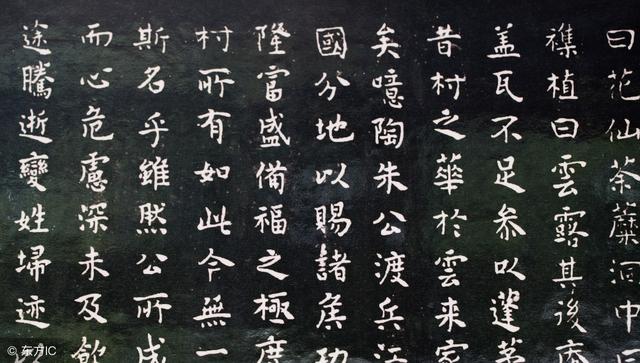 曰花仙荼蘪洞中
襍植曰雲露其後
盖瓦不足参以蓬茅
昔村之華於雲来
矣噫陶朱公渡兵
國分地以賜諸矦功
隆富盛備福之極
村所有如此今無一
斯名乎雖然公所成
而心危慮深未及
途騰逝變姓埽迹
© 东方IC